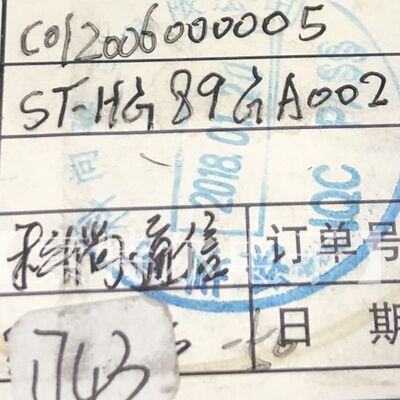 C012006000005
ST-HG89GA002
2018.0
IQC PASS
科尚通信
订单号
日期
1743